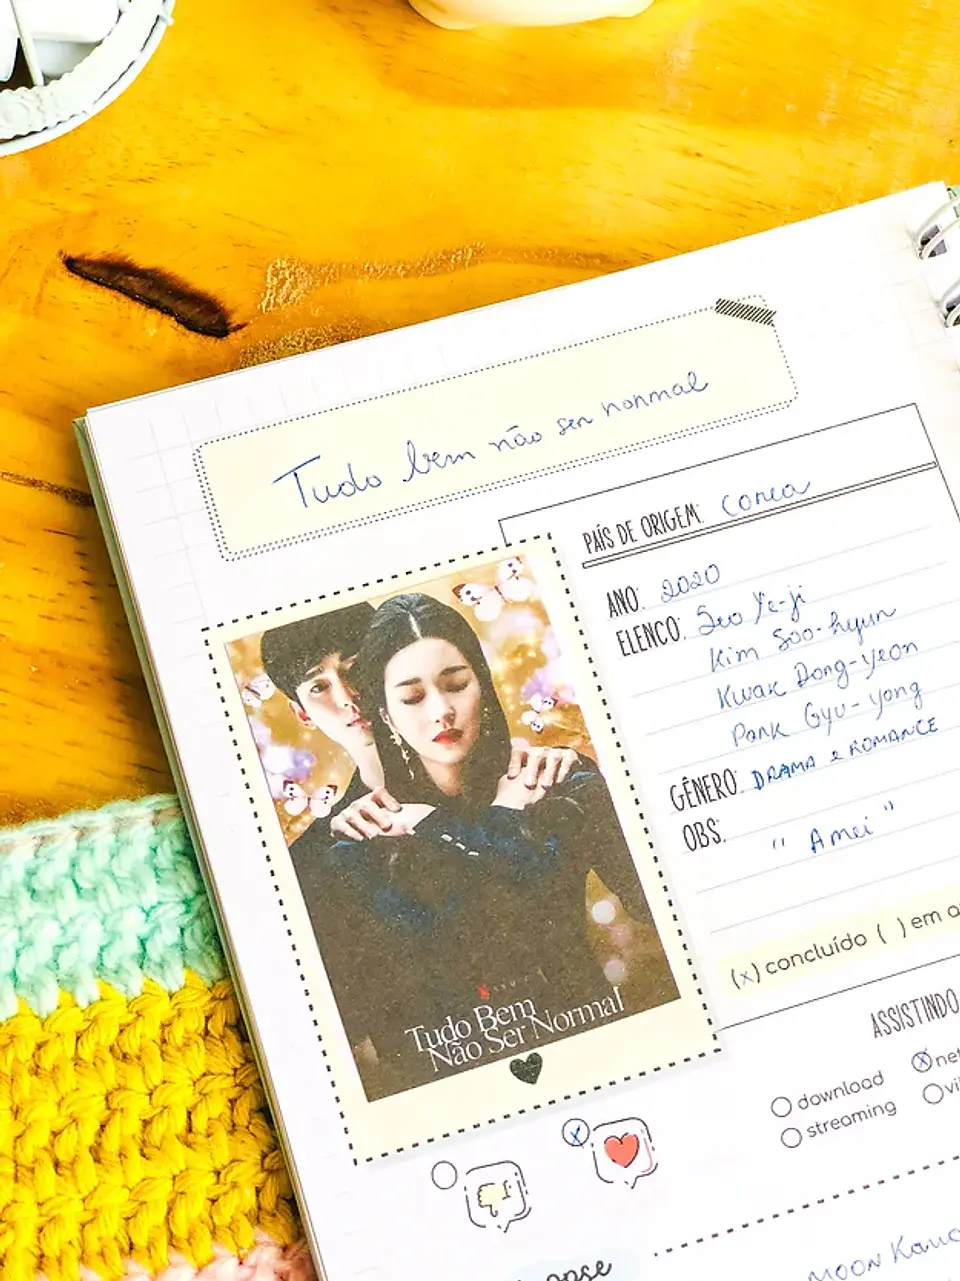 Tudo bem não ser normal
PAÍS DE ORIGEM: Corea
ANO: 2020
ELENCO: Seo Ye-ji
Kim Soo-hyun
Kwak Dong-yeon
Park Gyu-yong
GÊNERO: DRAMA e ROMANCE
OBS:
" Amei "
(x) concluído ( ) em a
Tudo Bem
Não Ser Normal
ASSISTINDO
download
net
streaming
MOON